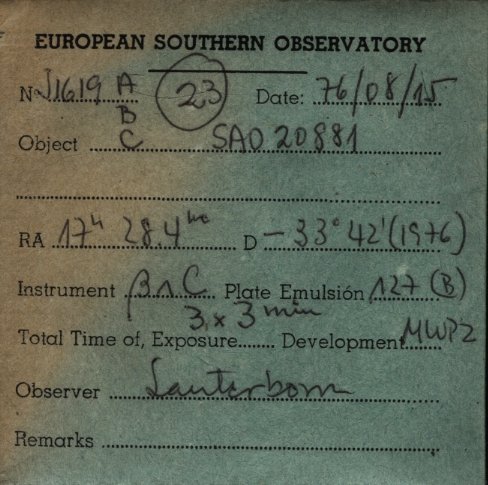 EUROPEAN SOUTHERN OBSERVATORY
No J1619 A B C (23) Date: 76/08/15
Object SAO 20881
RA 17h 28.4 D -33° 42' (1976)
Instrument B n C Plate Emulsión 127 (B)
Total Time of, Exposure 3 x 3 min Development MWP2
Observer Lauterborn
Remarks